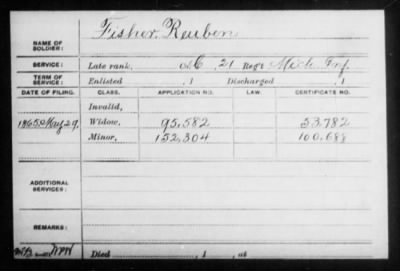 Fisher, Reuben
NAME OF SOLDIER:
SERVICE: Late rank, Co. C, 21 Reg't Mich Inf.
TERM OF SERVICE: Enlisted , 1 Discharged , 1
DATE OF FILING. CLASS. APPLICATION NO. LAW. CERTIFICATE NO.
Invalid,
1865 May 29, Widow, 95,582 53,782
Minor, 152,304 100,688
ADDITIONAL SERVICES:
REMARKS:
Died , 1 , at